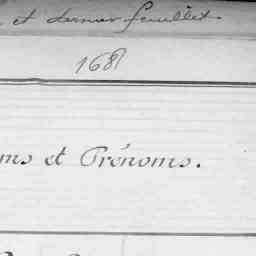 et dernier feuillet
168
ms et Prénoms.